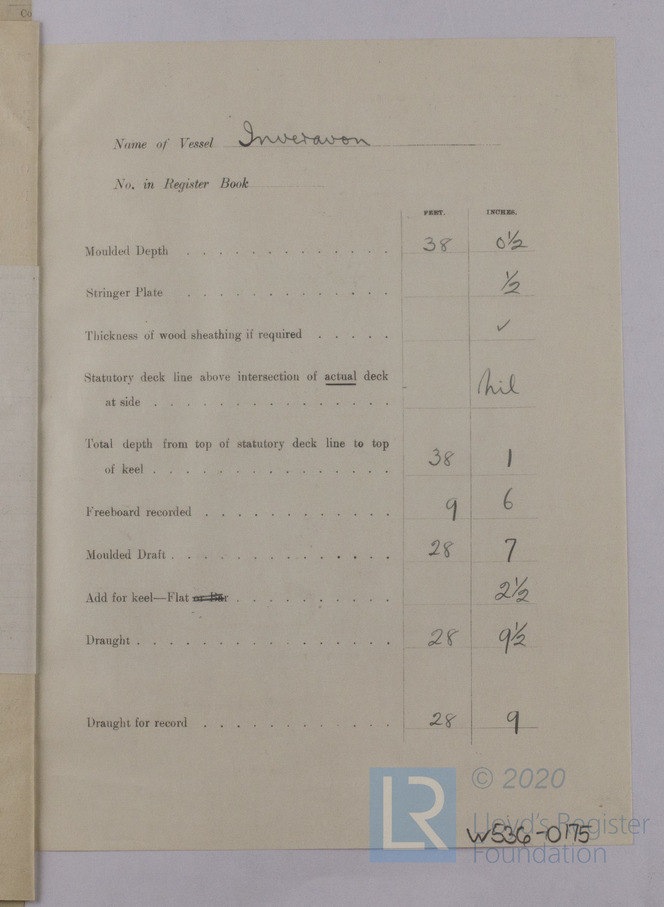 Co
Name of Vessel Inveravon
No. in Register Book
FEET. INCHES.
Moulded Depth . . . . . . . . . . . . . 38 0½
Stringer Plate . . . . . . . . . . . . . ½
Thickness of wood sheathing if required . . . . . ✓
Statutory deck line above intersection of actual deck
at side . . . . . . . . . . . . . . . nil
Total depth from top of statutory deck line to top
of keel . . . . . . . . . . . . . . . 38 1
Freeboard recorded . . . . . . . . . . . . 9 6
Moulded Draft . . . . . . . . . . . . . . 28 7
Add for keel—Flat or Bar . . . . . . . . . . 2½
Draught . . . . . . . . . . . . . . . . 28 9½
Draught for record . . . . . . . . . . . . 28 9
LR
© 2020
Lloyd's Register
Foundation
W536-0175